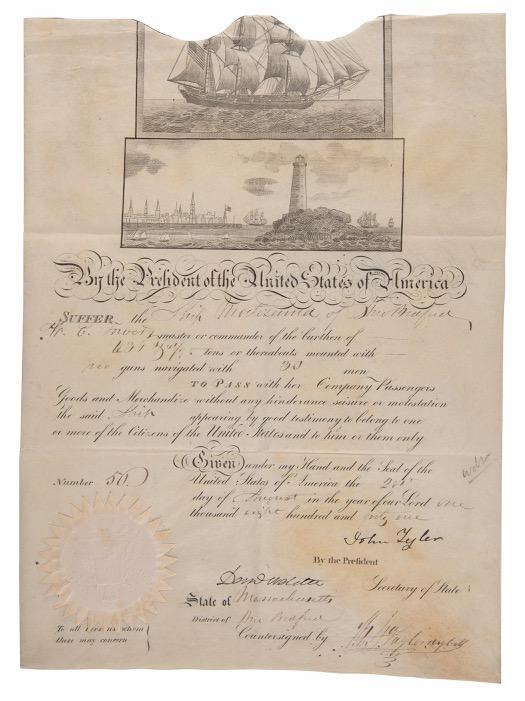 By the President of the United States of America
SUFFER the Ship of New Bedford
master or commander of the burthen of
tons or thereabouts mounted with
no guns navigated with men
TO PASS with her Company Passengers
Goods and Merchandize without any hinderance seisure or molestation
the said Ship appearing by good testimony to belong to one
or more of the Citizens of the United States and to him or them only
Given under my Hand and the Seal of the
Number 50 United States of America the
day of August in the year of our Lord one
thousand eight hundred and forty one
John Tyler
By the President
Secretary of State
State of Massachusetts
District of New Bedford
To all persons whom
these may concern
Countersigned by